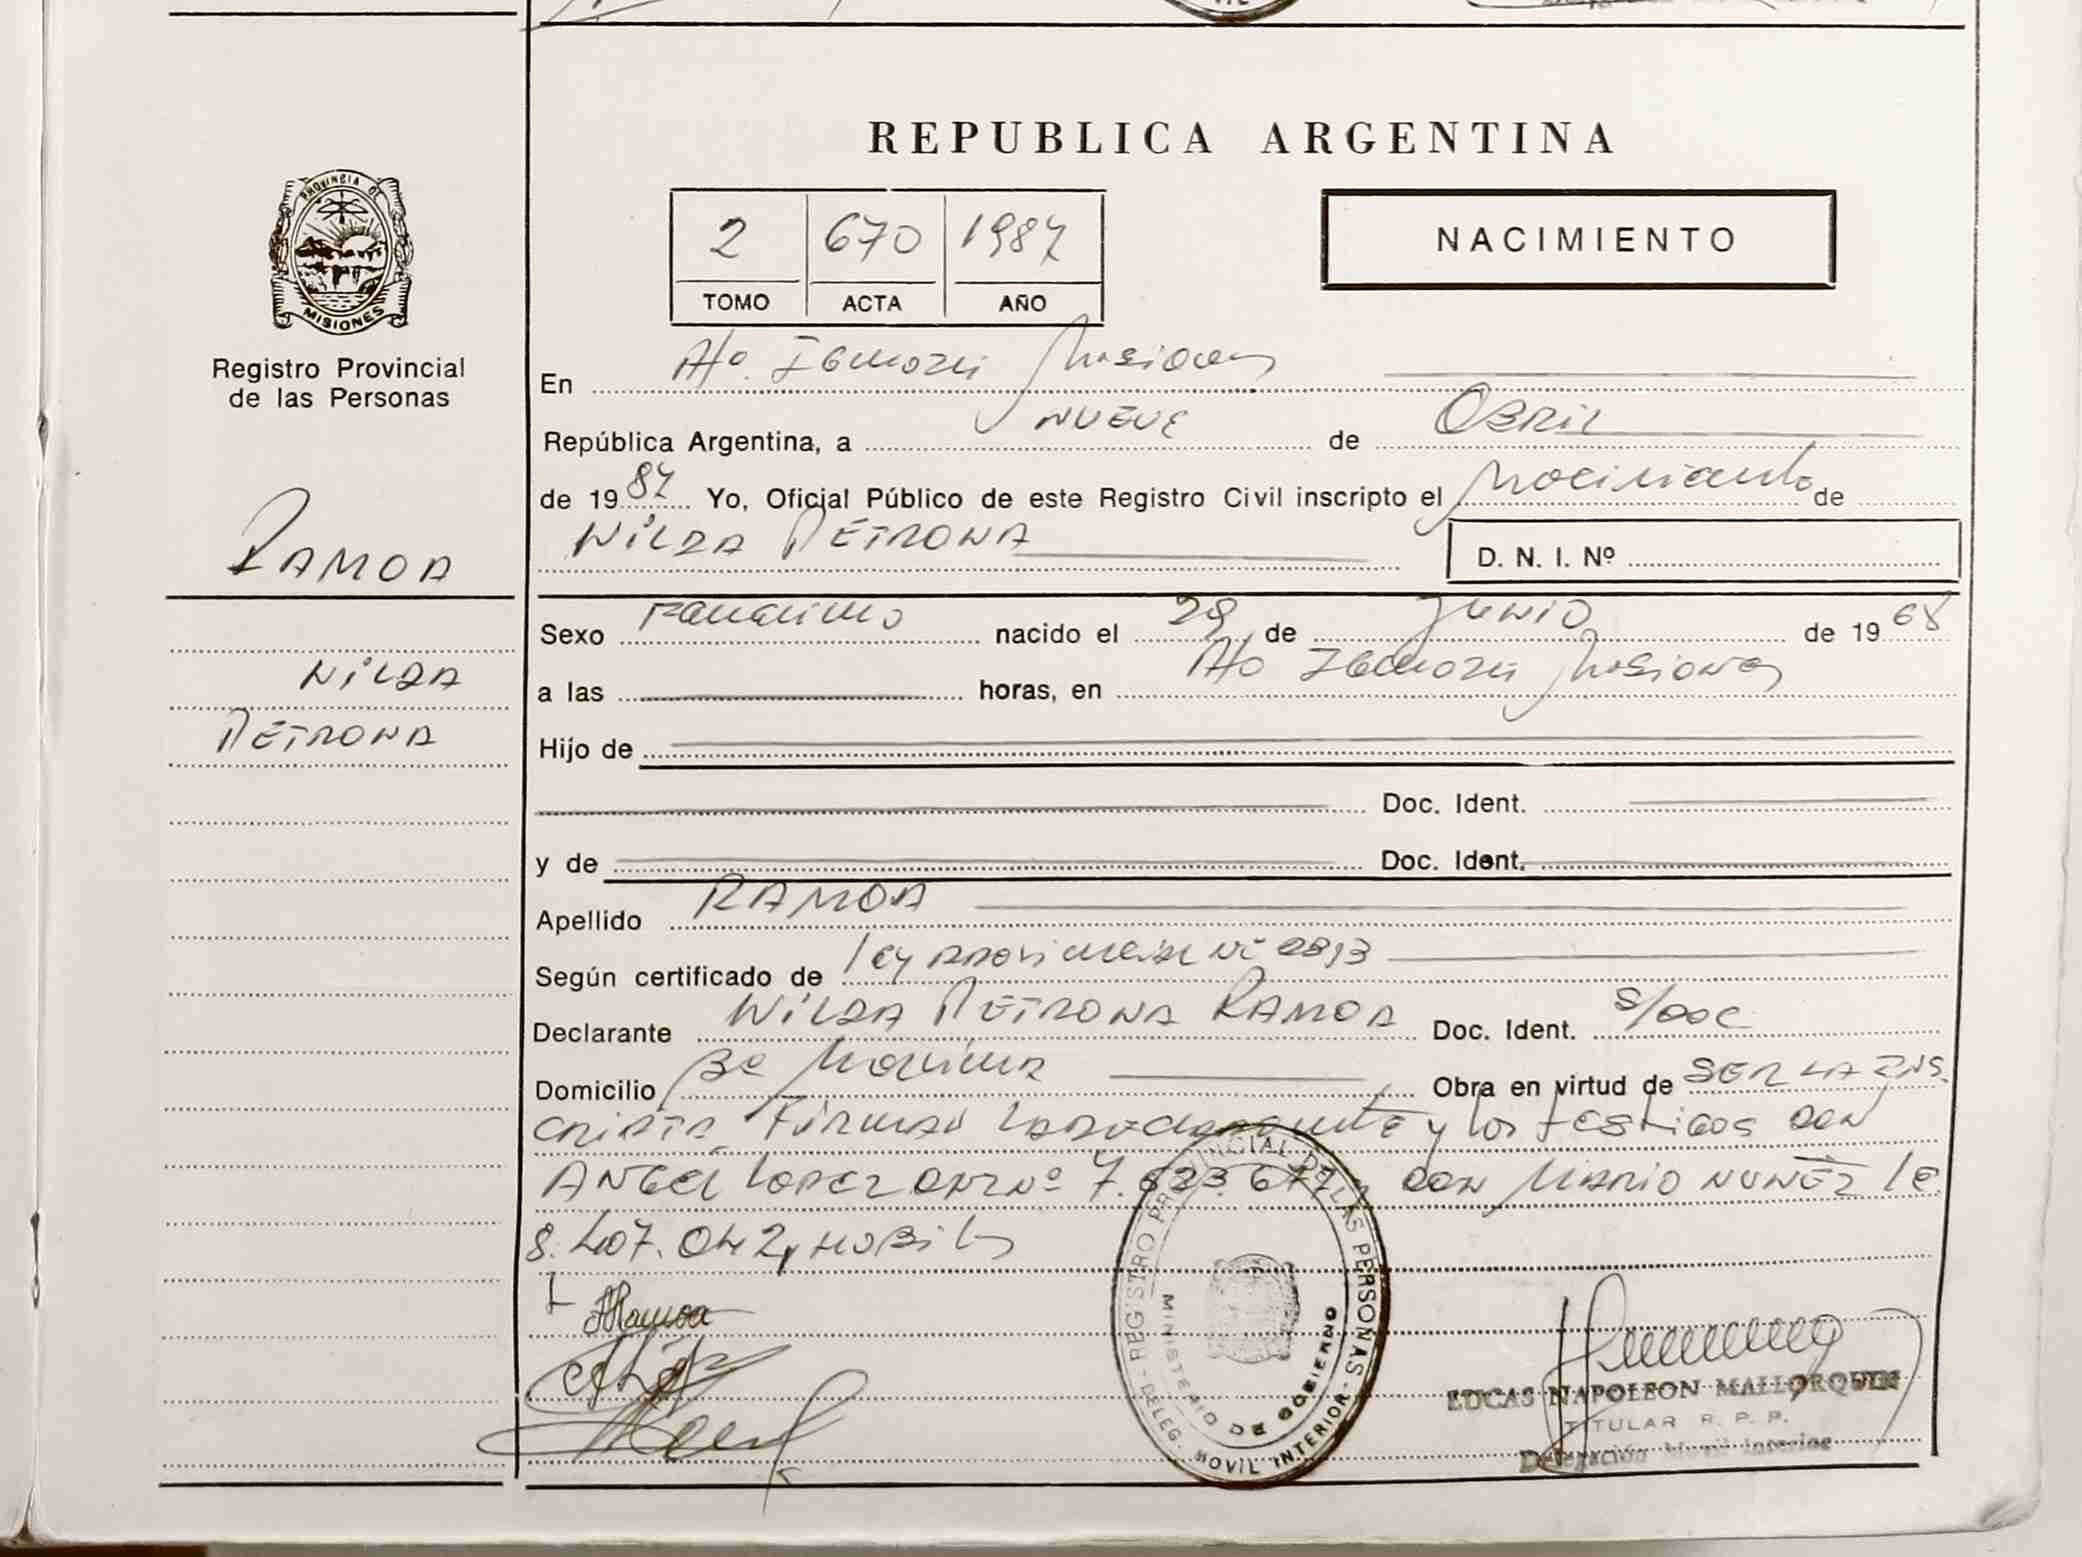 REPUBLICA ARGENTINA
PROVINCIA DE
MISIONES
Registro Provincial
de las Personas
2 670 1987
TOMO ACTA AÑO
NACIMIENTO
En Pto. Iguazú Misiones
República Argentina, a NUEVE de ABRIL
de 1987 Yo, Oficial Público de este Registro Civil inscripto el Nacimiento de
NILDA PETRONA
D. N. I. Nº
RAMOA
NILDA
PETRONA
Sexo Femenino nacido el 29 de JUNIO de 1968
a las horas, en Pto Iguazú Misiones
Hijo de
Doc. Ident.
y de Doc. Ident.
Apellido RAMOA
Según certificado de ley provincial Nº
Declarante NILDA PETRONA RAMOA Doc. Ident. S/DOC
Domicilio Bº Obra en virtud de SER LA INS.
CRIPTA. Firman la declarante y los testigos DON
ANGEL LOPEZ DNI Nº 7.623.677 DON MARIO NUÑEZ LE
8.407.042,
Ramoa
REGISTRO PROVINCIAL DE LAS PERSONAS
MINISTERIO DE GOBIERNO
DELEG. MOVIL INTERIOR
LUCAS NAPOLEON MALLORQUIN
TITULAR R. P. P.
Delegación Movil Interior